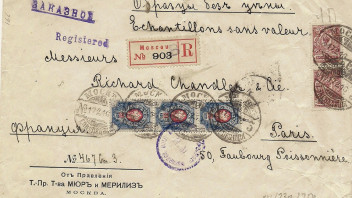 ЗАКАЗНОЕ
Образцы безъ цѣны.
Echantillons sans valeur.
Registered
Messieurs
Moscou
№ 903
R
Richard Chandler & Cie.
Франція
Paris.
50, Faubourg Poissonnière
№ 4676 т. 3.
Отъ Правленія
Т.-Пр. Т-ва МЮРЪ и МЕРИЛИЗЪ
МОСКВА.